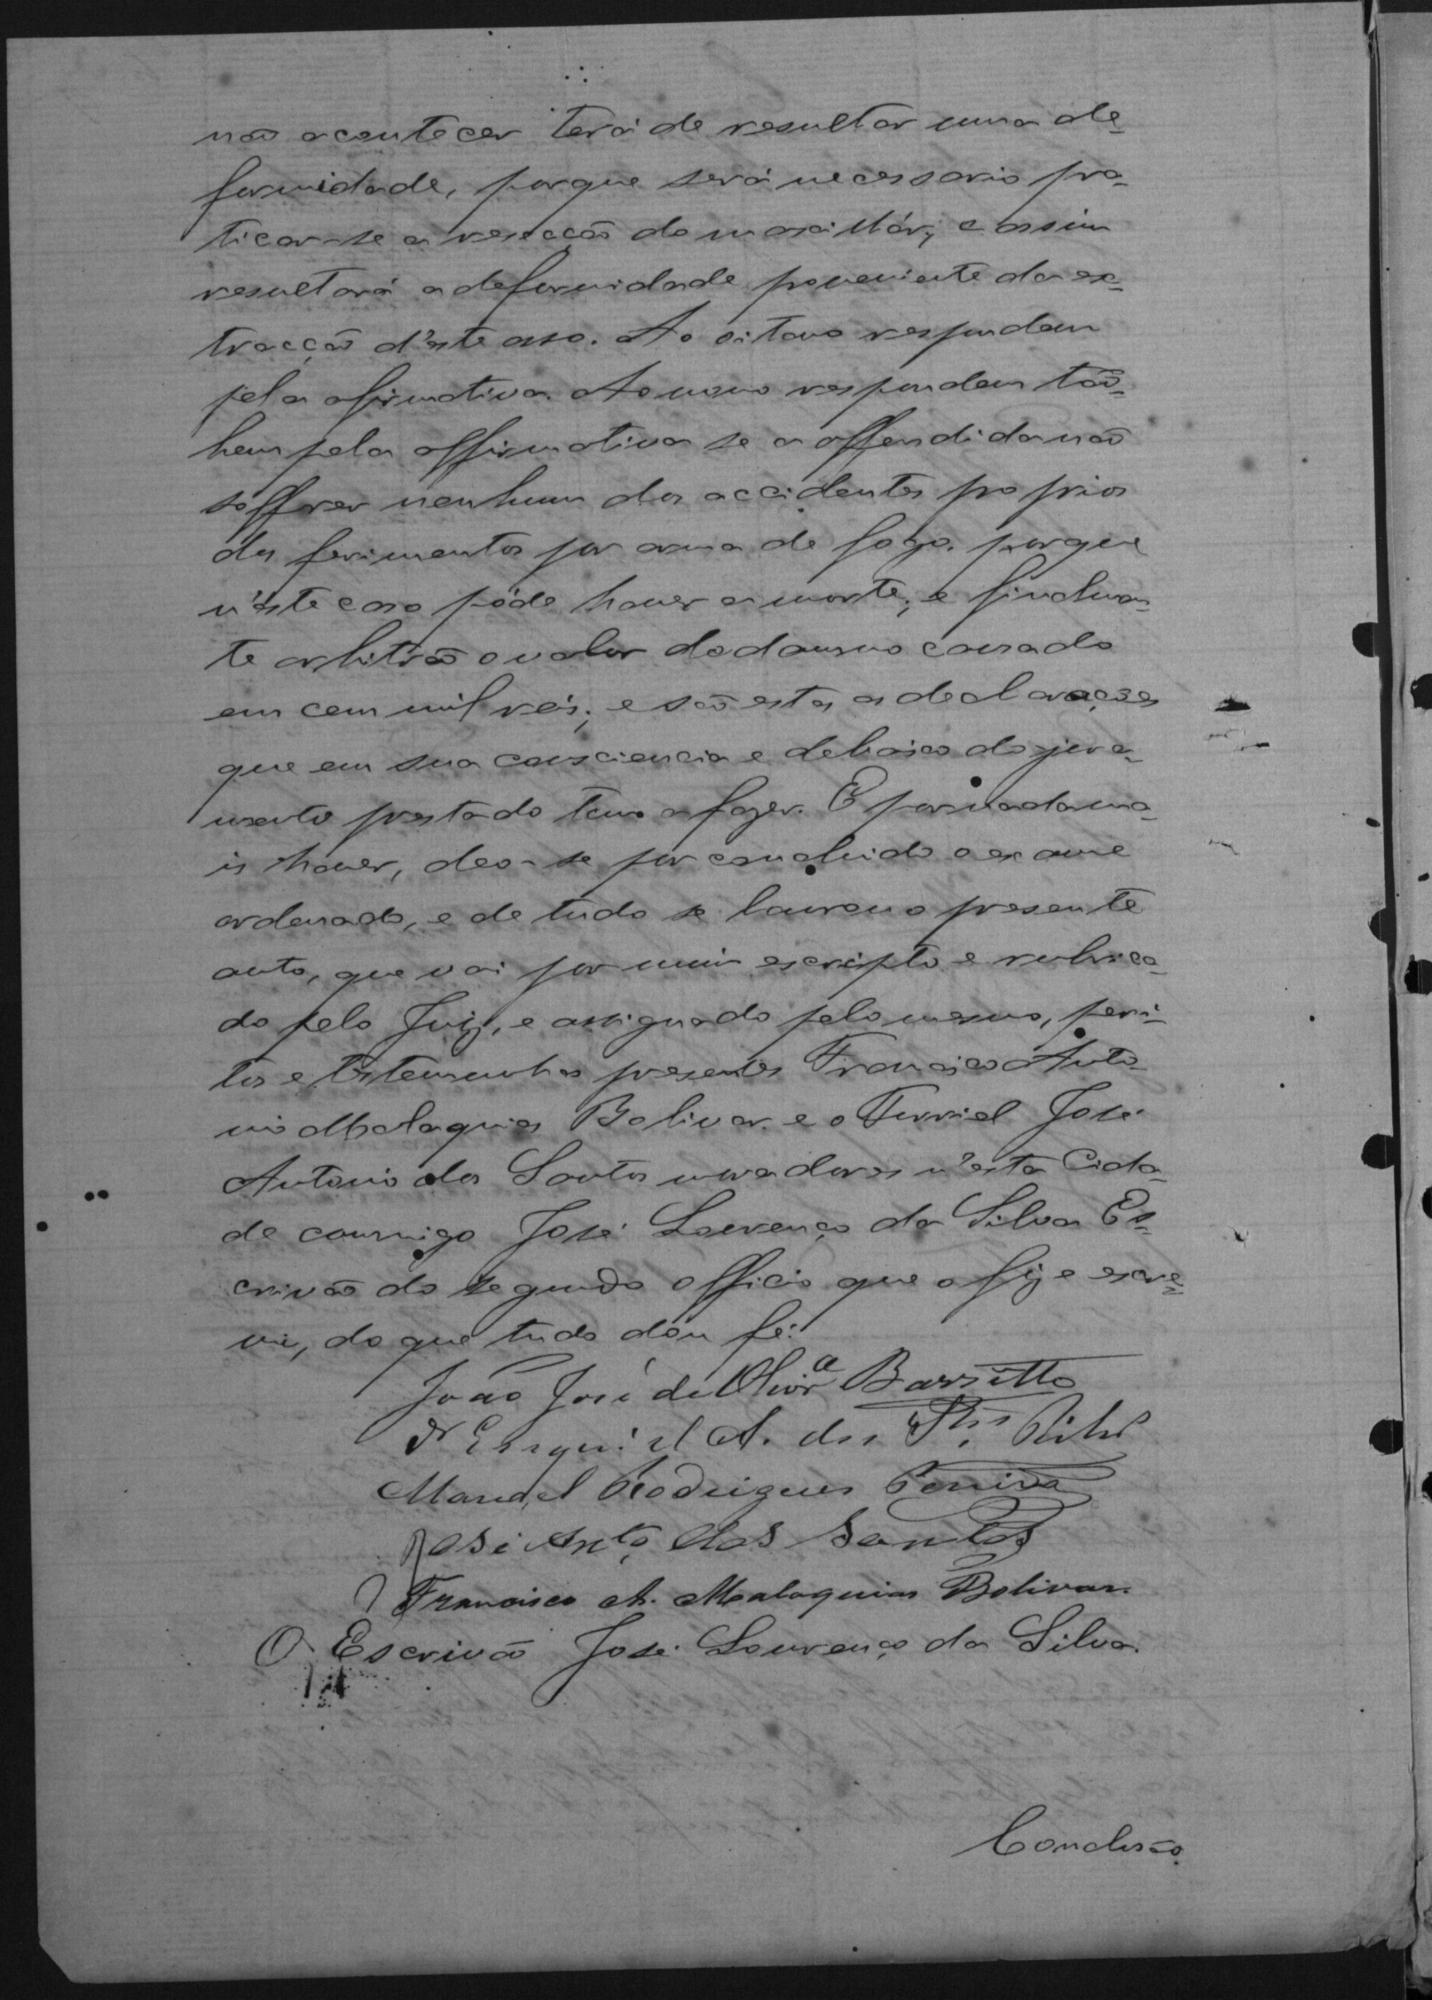 não acontecer terá de resultar uma de-
formidade, porque será necessario pra-
ticar-se a resecção do maxillár; e assim
resultará a deformidade proveniente da ex-
tracção d'este osso. Ao oitavo respondem
pela afirmativa. Ao nono respondem tão-
bem pela affirmativa se a offendida não
soffrer nenhum dos accidentes proprios
dos ferimentos por arma de fogo, porque
n'este caso póde haver a morte; e finalmen-
te arbitrão o valor do damno causado
em cem mil reis; e são estas as declarações
que em sua consciencia e debaixo do jura-
mento prestado tem a fazer. E por nada ma-
is haver, deo-se por concluido o exame
ordenado, e de tudo se lavrou o presente
auto, que vai por mim escripto e rubrica-
do pelo Juiz, e assignado pelo mesmo, peri-
tos e testemunhas presentes Francisco Anto-
nio Malaquias Bolivar e o Furriel José
Antonio dos Santos moradores n'esta Cida-
de commigo José Lourenço da Silva Es-
crivão do segundo officio que o fiz e escre-
vi, do que tudo dou fé.
João José de Olivrª Barretto
Dr Esequiel A. dos
Manoel Rodrigues Pereira
José Antº dos Santos
Francisco A. Malaquias Bolivar.
O Escrivão José Lourenço da Silva.
Conclusão.